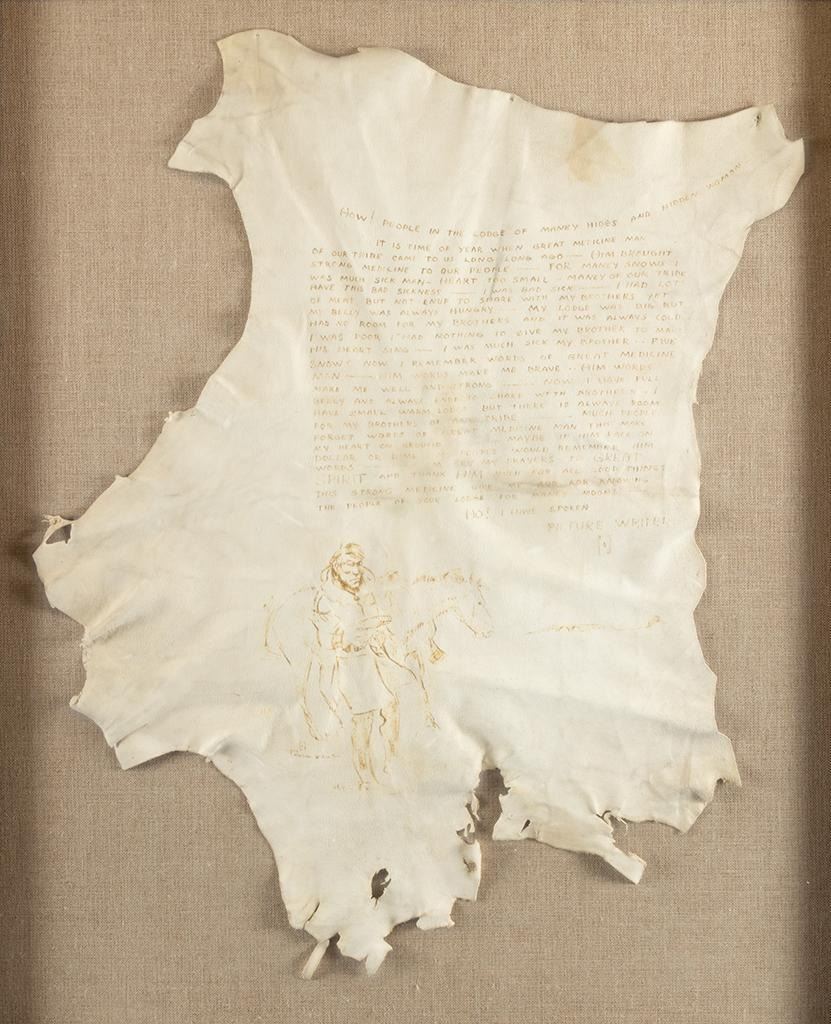 HOW! PEOPLE IN THE LODGE OF MANEY HIGGS AND HIDDEN WOMAN
IT IS TIME OF YEAR WHEN GREAT MEDICINE MAN
OF OUR TRIBE CAME TO US LONG LONG AGO — HIM BROUGHT
STRONG MEDICINE TO OUR PEOPLE — FOR MANEY SNOWS I
WAS MUCH SICK MAN - HEART TOO SMALL - MANEY OF OUR TRIBE
HAVE THIS BAD SICKNESS — I WAS BAD SICK — I HAD LOT
OF MEAT BUT NOT ENUF TO SHARE WITH MY BROTHERS YET
MY BELLY WAS ALWAYS HUNGRY — MY LODGE WAS BIG BUT
HAS NO ROOM FOR MY BROTHERS AND IT WAS ALWAYS COLD
I WAS POOR I HAD NOTHING TO GIVE MY BROTHER TO MAKE
HIS HEART SING — I WAS MUCH SICK MY BROTHER - - FIVE
SNOWS NOW I REMEMBER WORDS OF GREAT MEDICINE
MAN — HIM WORDS MAKE ME BRAVE - - HIM WORDS
MAKE ME WELL AND STRONG — NOW I HAVE FULL
BELLY AND ALWAYS ENUF TO SHARE WITH BROTHERS - I
HAVE SMALL WARM LODGE BUT THERE IS ALWAYS ROOM
FOR MY BROTHERS OF TRIBE MUCH PEOPLE
FORGET WORDS OF GREAT MEDICINE MAN THIS MAKE
MY HEART ON GROUND MAYBE IF HIM FACE ON
DOLLAR OR DIME PEOPLES WOULD REMEMBER HIM
WORDS — MY PRAYERS TO GREAT
SPIRIT AND THANK HIM MUCH FOR ALL GOOD THINGS
THIS STRONG MEDICINE GIVE ME AND FOR KNOWING
THE PEOPLE OF YOUR LODGE FOR MANEY MOONS
HO! I HAVE SPOKEN
PICTURE WRITER